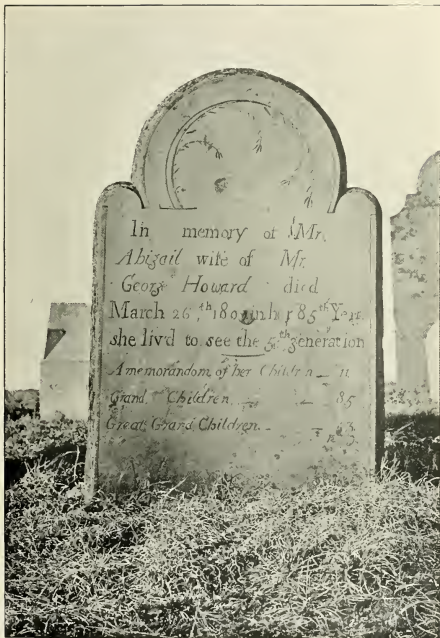 In memory of Mr.
Abigail wife of Mr.
George Howard died
March 26,th 180 in h r 85th Year
she liv'd to see the 5th generation
A memorandom of her Childr n 11
Grand Children. 85
Great Grand Children.